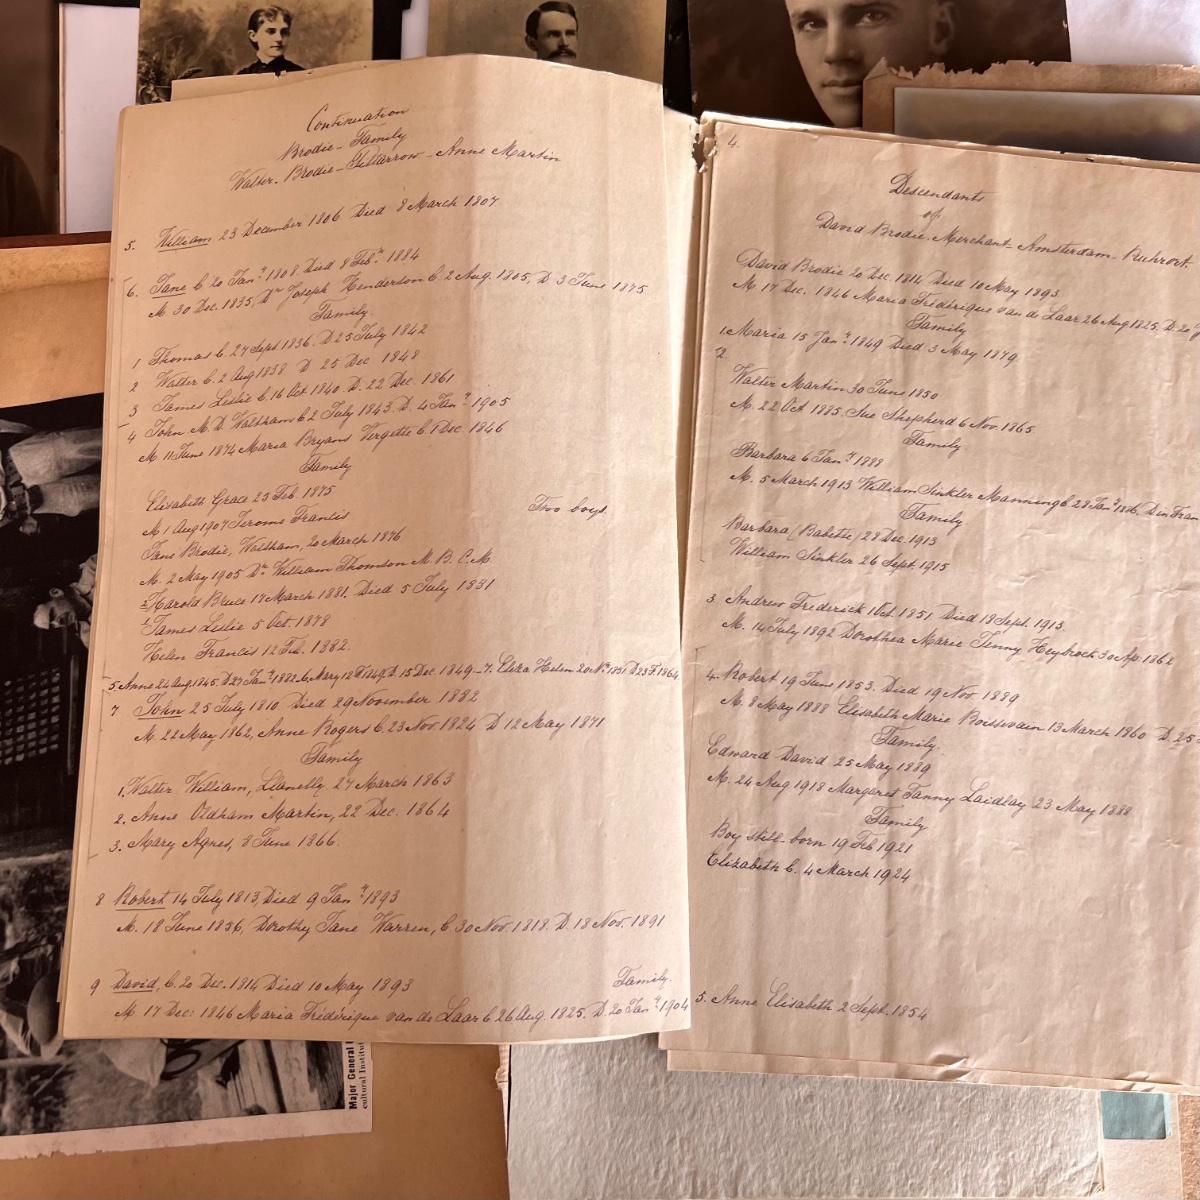 Continuation
Brodie - Family
Walter - Brodie - Anne Martin
5. William 23 December 1806 Died 8 March 1807
6. Jane b 20 Jany. 1808 Died 8 Feby. 1884
M. 30 Dec. 1835, Dr. Joseph Henderson b. 2 Aug. 1805, D. 3 June 1875
Family.
1 Thomas b. 27 Sept 1836. D 25 July 1842
2 Walter b. 2 Aug 1838 D 25 Dec. 1848
3 James Leslie b. 16 Oct 1840 D. 22 Dec. 1861
4 John M. D. Waltham b 2 July 1843. D. 4 Jany. 1905
M. 11 June 1874 Maria Bryans Vergette b. 1 Dec. 1846
Family
Elisabeth Grace 23 Feb. 1875
M 1 Aug 1907 Jerome Francis Two boys.
Jane Brodie, Waltham, 20 March 1876
M. 2 May 1905 Dr. William Thomson M. B. C. M.
2 Harold Bruce 17 March 1881. Died 5 July 1881
1 James Leslie 5 Oct. 1878
Helen Francis 12 Feb. 1882.
5 Anne 24 Aug. 1845. D 27 Jany. 1882 - 6. Mary 12 1849. D. 15 Dec. 1849 - 7. Eliza Helen 20 1851 D 23 1864
7 John 25 July 1810 Died 29 November 1882
M. 22 May 1862, Anne Rogers b. 23 Nov. 1824 D 12 May 1871
Family
1. Walter William, Llanelly 27 March 1863
2. Anne Oldham Martin, 22 Dec. 1864
3. Mary Agnes, 8 June 1866.
8 Robert 14 July 1813, Died 9 Jany. 1893
M. 18 June 1836, Dorothy Jane Warren, b. 30 Nov. 1818. D. 18 Nov. 1891
9 David, b. 20 Dec. 1814 Died 10 May 1893 Family.
M. 17 Dec: 1846 Maria Fréderique van de Laar b 26 Aug. 1825. D. 20 Jany. 1904
4.
Descendants
of
David Brodie. Merchant - Amsterdam - Ruhrort.
David Brodie 20 Dec. 1814 Died 10 May 1893.
M 17 Dec. 1846 Maria Fréderique van de Laar 26 Aug 1825. D. 20
Family
1. Maria 15 Jany. 1849 Died 3 May 1879
2.
Walter Martin 30 June 1850
M. 22 Oct 1885. Sue Shepherd 6 Nov. 1865.
Family
Barbara 6 Jany. 1888
M. 5 March 1913 William Sinkler Manning b. 28 Jany. 1886. D. in Fran
Family
Barbara (Babette) 28 Dec. 1913
William Sinkler 26 Sept. 1915
3. Andrew Frederick 1 Oct. 1851 Died 18 Sept. 1913
M. 14 July 1892 Dorothea Marie Jenny Heybrock 30 Ap. 1862
4. Robert 19 June 1853. Died 19 Nov 1889
M. 8 May 1888 Elisabeth Marie Boissevain 13 March 1860 D. 25
Family.
Edward David 25 May 1889
M. 24 Aug 1918 Margaret Fanny Laidlay 23 May 1888
Family
Boy still-born 19 Feb 1921
Elizabeth b. 4 March 1924
5. Anne Elisabeth 2 Sept. 1854
Major General
cultural Institut